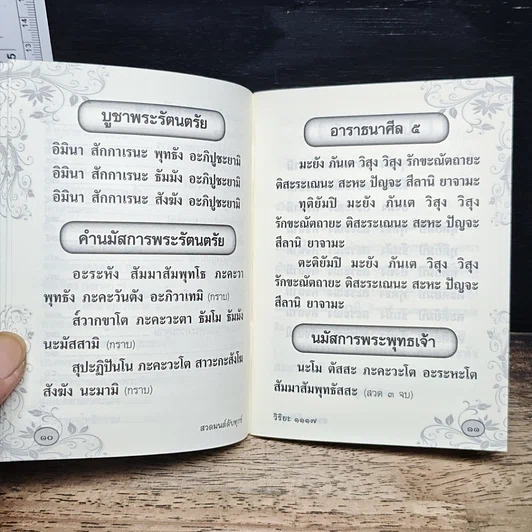 บูชาพระรัตนตรัย
อิมินา สักกาเรนะ พุทธัง อะภิปูชะยามิ
อิมินา สักกาเรนะ ธัมมัง อะภิปูชะยามิ
อิมินา สักกาเรนะ สังฆัง อะภิปูชะยามิ
คำนมัสการพระรัตนตรัย
อะระหัง สัมมาสัมพุทโธ ภะคะวา
พุทธัง ภะคะวันตัง อะภิวาเทมิ (กราบ)
ส๎วากขาโต ภะคะวะตา ธัมโม ธัมมัง
นะมัสสามิ (กราบ)
สุปะฏิปันโน ภะคะวะโต สาวะกะสังโฆ
สังฆัง นะมามิ (กราบ)
๑๐
สวดมนต์ดับทุกข์
อาราธนาศีล ๕
มะยัง ภันเต วิสุง วิสุง รักขะณัตถายะ
ติสะระเณนะ สะหะ ปัญจะ สีลานิ ยาจามะ
ทุติยัมปิ มะยัง ภันเต วิสุง วิสุง
รักขะณัตถายะ ติสะระเณนะ สะหะ ปัญจะ
สีลานิ ยาจามะ
ตะติยัมปิ มะยัง ภันเต วิสุง วิสุง
รักขะณัตถายะ ติสะระเณนะ สะหะ ปัญจะ
สีลานิ ยาจามะ
นมัสการพระพุทธเจ้า
นะโม ตัสสะ ภะคะวะโต อะระหะโต
สัมมาสัมพุทธัสสะ (สวด ๓ จบ)
วิริยะ ๑๑๑๗
๑๑